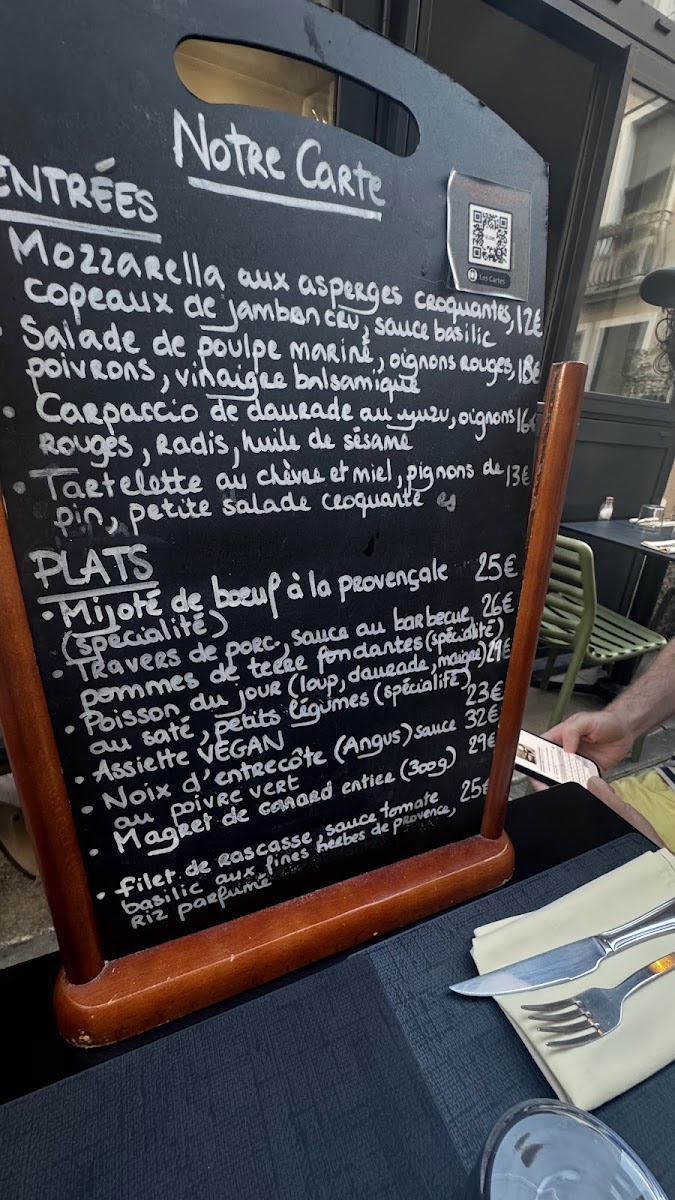 Notre Carte
Les Cartes
ENTRÉES
Mozzarella aux asperges croquantes, 12€
copeaux de jambon cru, sauce basilic
• Salade de poulpe mariné, oignons rouges, 18€
poivrons, vinaigre balsamique
• Carpaccio de daurade au yuzu, oignons 16€
rouges, radis, huile de sésame
• Tartelette au chèvre et miel, pignons de 13€
pin, petite salade croquante
PLATS
• Mijoté de boeuf à la provençale 25€
(spécialité)
• Travers de porc, sauce au barbecue 26€
pommes de terre fondantes (spécialité)
• Poisson du jour (loup, daurade, maigre) 29€
au saté, petits légumes (spécialité)
• Assiette VEGAN 23€
• Noix d'entrecôte (Angus) sauce 32€
au poivre vert
• Magret de canard entier (300g) 29€
• filet de rascasse, sauce tomate 25€
basilic aux fines herbes de provence,
Riz parfumé